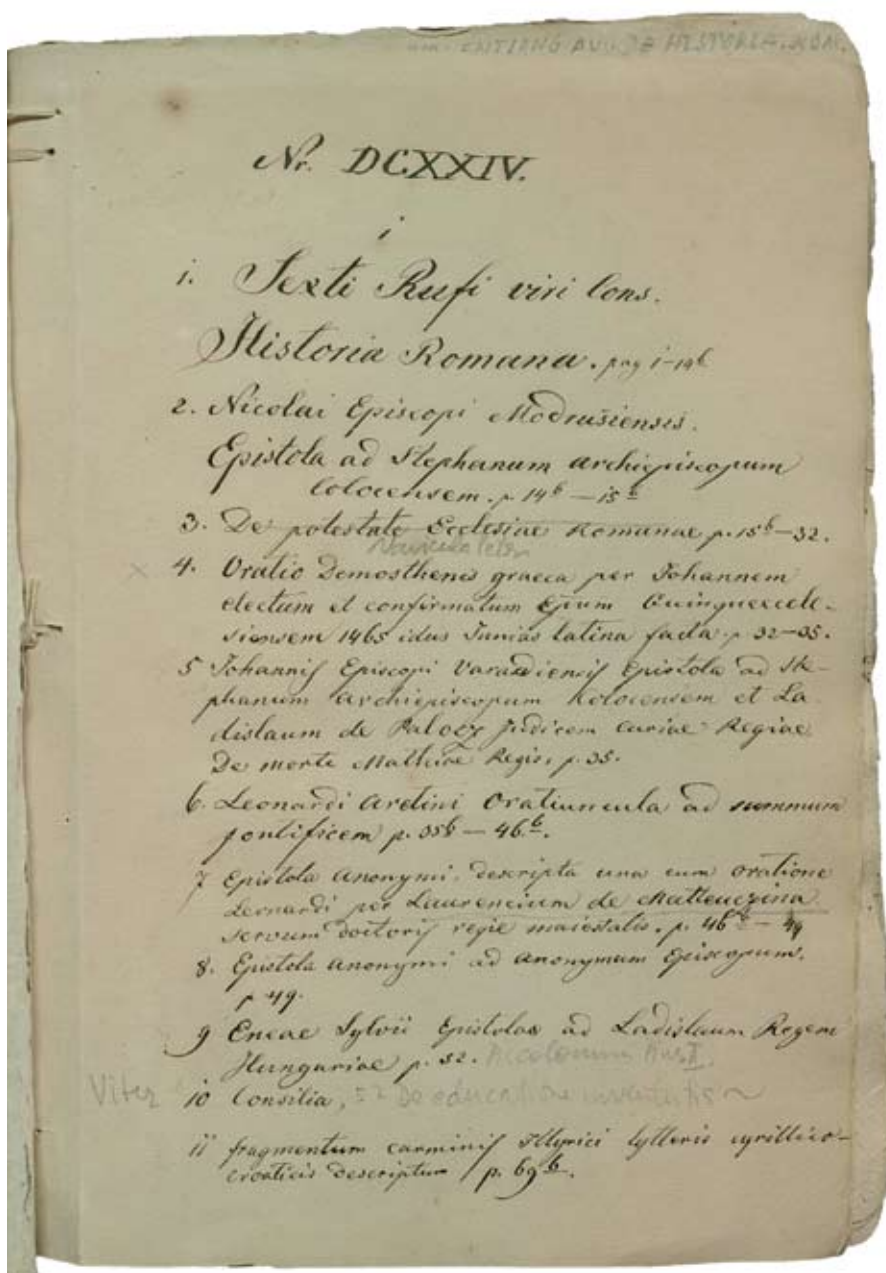 AUG. DE HISTORIA. ROM.
Nr. DCXXIV.
1
1. Sexti Rufi viri Cons.
Historia Romana. pag 1-14b
2. Nicolai Episcopi Modrusiensis.
Epistola ad Stephanum Archiepiscopum
Colocensem. p. 14b — 15b
3. De potestate Ecclesiae Romanae p. 15b — 32.
4. Oratio Demosthenis graeca per Johannem
electum et confirmatum Epum Quinqueeccle-
siensem 1465 idus Junias latina facta p. 32—35.
5 Johannis Episcopi Varadiensis Epistola ad Ste-
phanum Archiepiscopum Kolocensem et La
dislaum de Palocz Judicem curiae Regiae
De morte Mathiae Regis, p. 35.
6. Leonardi Aretini Oratiuncula ad summum
pontificem p. 35b — 46b.
7 Epistola Anonymi, descripta una cum oratione
Leonardi per Laurencium de Matteuczina
servum doctoris regie maiestatis. p. 46b — 49
8. Epistola Anonymi ad Anonymum Episcopum.
p 49.
9 Eneae Sylvii Epistolae ad Ladislaum Regem
Hungariae p. 52.
Vitez 10 Consilia, 52 De educatione iuventutis
11 fragmentum carminis Illyrici lytteris cyrillico-
croaticis descriptum p. 69b.